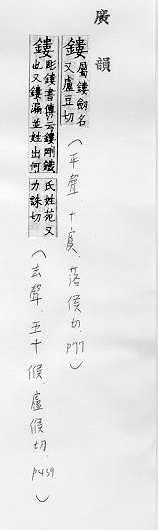 廣韻
鏤 屬鏤劒名
又盧豆切
(平聲十虞、落侯切、P77)
鏤 彫鏤書傳云鏤剛鐵
也又鏤漏並姓出何
氏姓苑又
力誅切
(去聲、五十候、盧候切、P439)